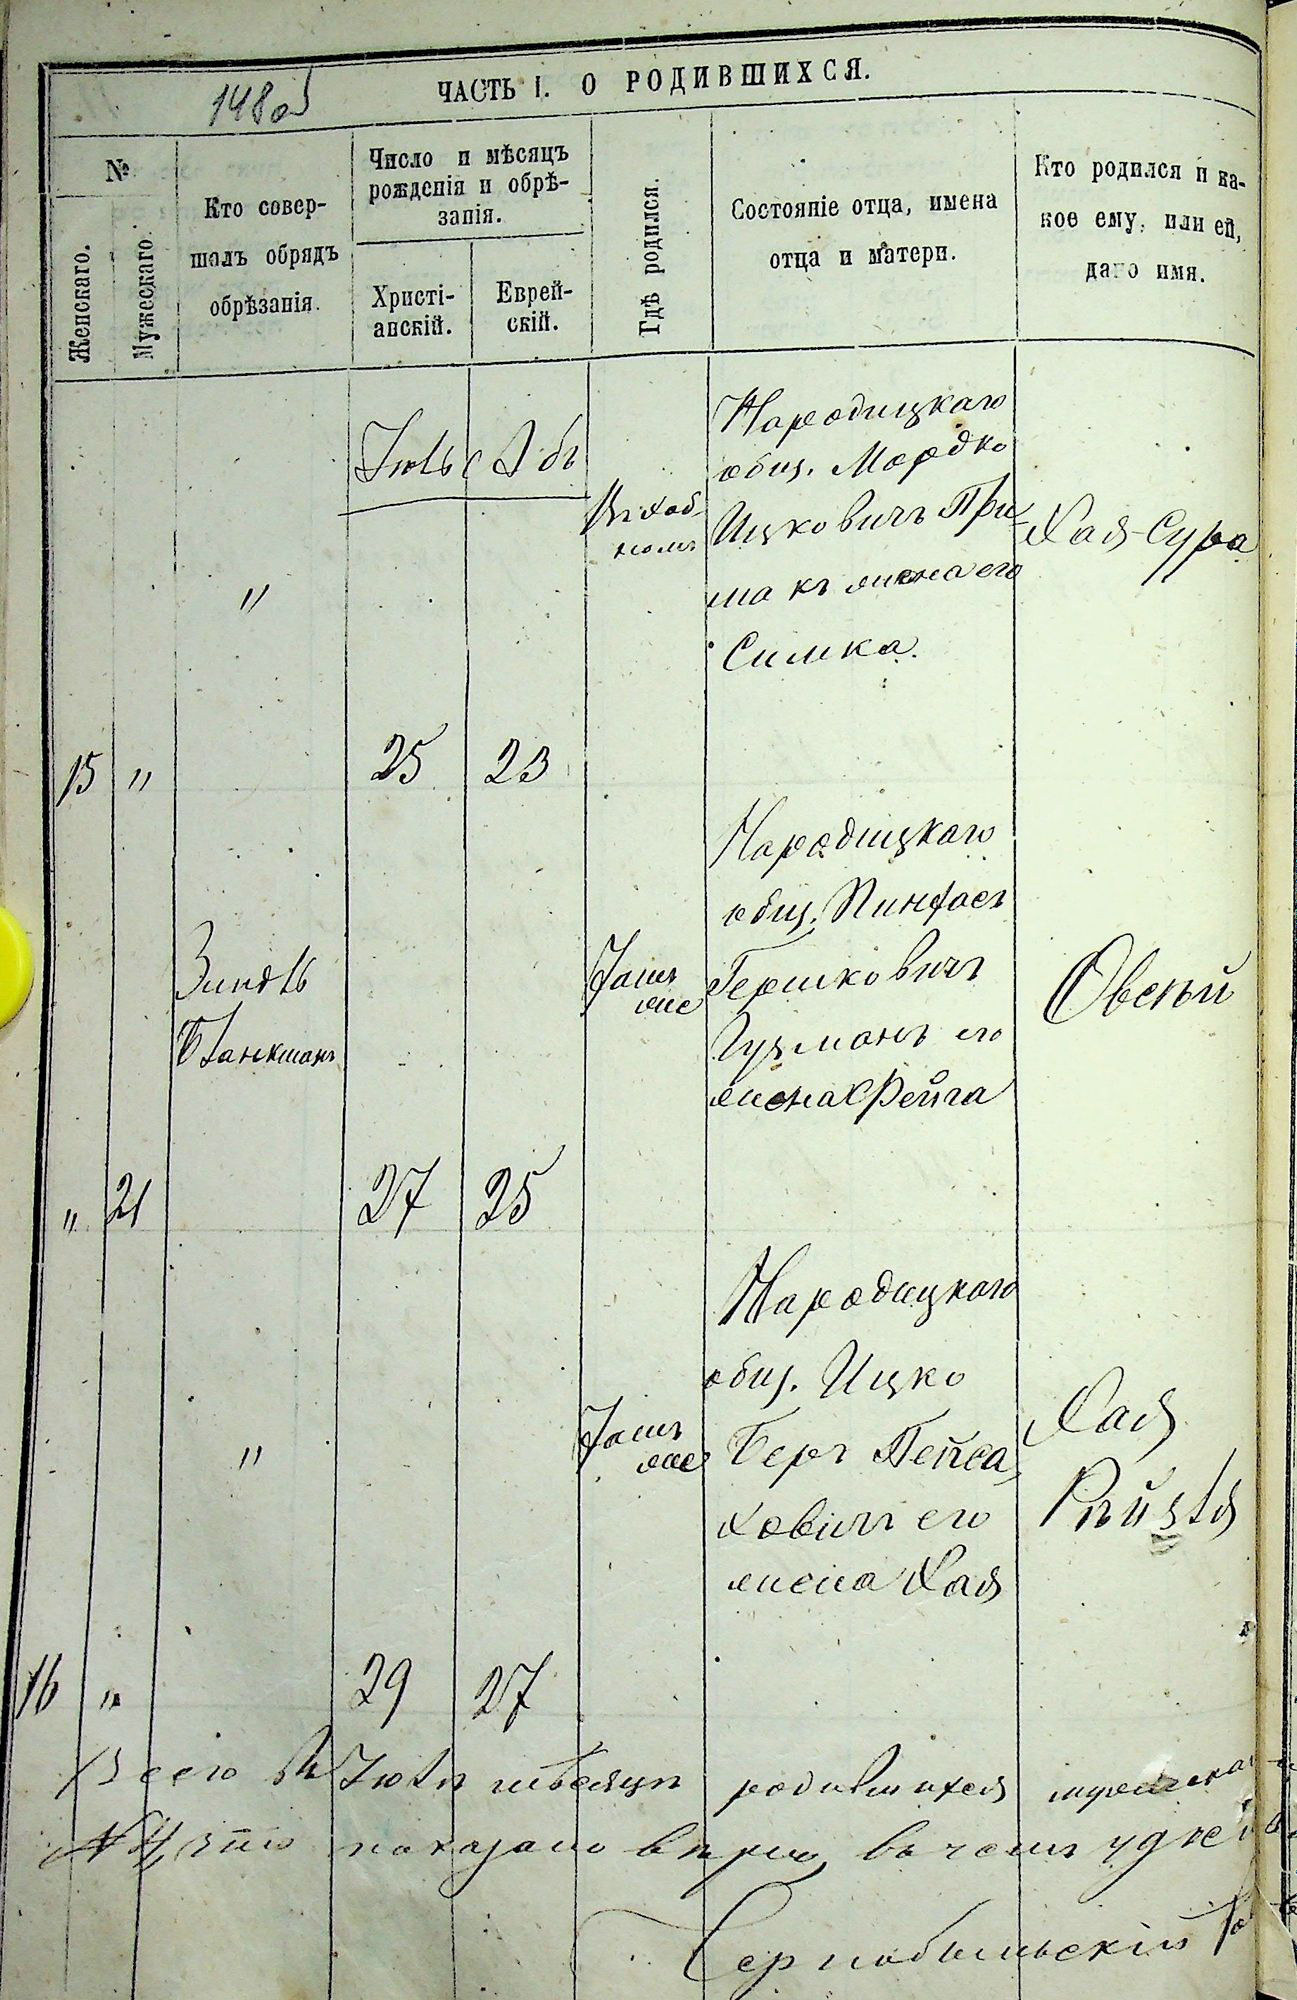 148 об
ЧАСТЬ I. О РОДИВШИХСЯ.
№
Женскаго.
Мужескаго.
Кто совер-
шалъ обрядъ
обрѣзанія.
Число и мѣсяцъ
рожденія и обрѣ-
занія.
Христі-
анскій.
Еврей-
скій.
Гдѣ родился.
Состояніе отца, имена
отца и матери.
Кто родился и ка-
кое ему, или ей,
дано имя.
Іюль Абъ
"
Народицкаго
общ. Мордко
Ицковичъ При
жена его
Симка.
Хая-Сура
15 " 25 23
Зиндль
Бланкманъ
Тамъ
же
Народицкаго
общ. Пинхасъ
Гершковичъ
его
жена Фейга
Овсѣй
" 21 27 25
"
Тамъ
же
Народицкаго
общ. Ицко
Беръ Пейса
ховичъ его
жена Хая
Хая
Рѣйзля
16 " 29 27
Всего въ Іюлѣ мѣсяцѣ родившихся
что показано вѣрно, въ чемъ
Чернобыльскій